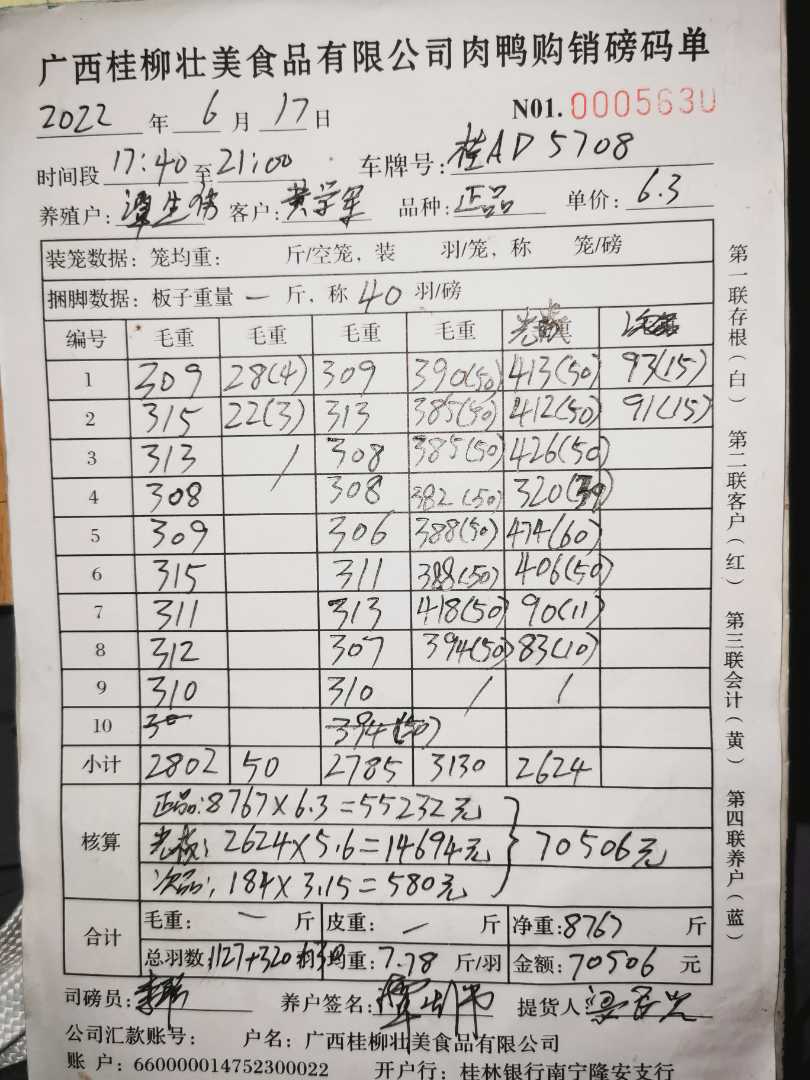 广西桂柳壮美食品有限公司肉鸭购销磅码单
2022 年 6 月 17 日 N01. 0005630
时间段 17:40 至 21:00 车牌号: 桂AD5708
养殖户: 客户: 黄学军 品种: 正品 单价: 6.3
装笼数据: 笼均重: 斤/空笼, 装 羽/笼, 称 笼/磅
捆脚数据: 板子重量 一 斤, 称 40 羽/磅
编号 毛重 毛重 毛重 毛重 光板 次品
1 309 28(4) 309 390(50) 413(50) 93(15)
2 315 22(3) 313 385(50) 412(50) 91(15)
3 313 / 308 385(50) 426(50)
4 308 308 382(50) 320
5 309 306 388(50) 474(60)
6 315 311 388(50) 406(50)
7 311 313 418(50) 90(11)
8 312 307 394(50) 83(10)
9 310 310 / /
10 30 394(50)
小计 2802 50 2785 3130 2624
核算
正品:8767×6.3=55232元
光板:2624×5.6=14694元
次品:184×3.15=580元
70506元
合计
毛重: 一 斤 皮重: 一 斤 净重:8767 斤
总羽数:1127+320 均重:7.78 斤/羽 金额:70506 元
司磅员: 养户签名: 提货人:
公司汇款账号: 户名: 广西桂柳壮美食品有限公司
账 户: 660000014752300022 开户行: 桂林银行南宁隆安支行
第一联存根(白) 第二联客户(红) 第三联会计(黄) 第四联养户(蓝)